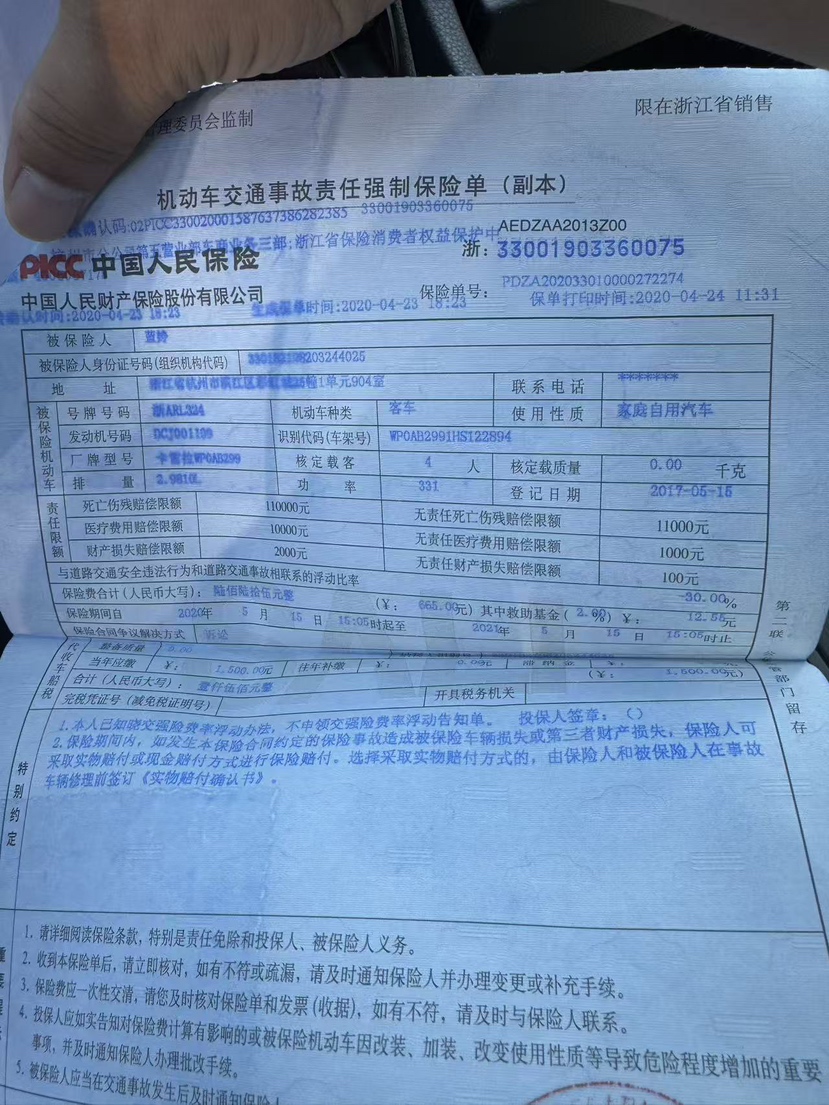 理委员会监制
限在浙江省销售
机动车交通事故责任强制保险单（副本）
确认码:02PICC330020001587637386282385 33001903360075
第五营业部车商业务三部;浙江省保险消费者权益保护中
AEDZAA2013Z00
浙: 33001903360075
PICC 中国人民保险
中国人民财产保险股份有限公司
保险单号: PDZA202033010000272274
确认时间:2020-04-23 18:23 生成保单时间:2020-04-23 18:23 保单打印时间:2020-04-24 11:31
被保险人
被保险人身份证号码(组织机构代码)
地 址 1单元904室 联系电话 *******
被保险机动车
号牌号码 浙ARL324 机动车种类 客车 使用性质 家庭自用汽车
发动机号码 DCJ001199 识别代码(车架号) WP0AB2991HS122894
厂牌型号 卡雷拉WP0AB299 核定载客 4 人 核定载质量 0.00 千克
排 量 2.9810L 功 率 331 登记日期 2017-05-15
责任限额
死亡伤残赔偿限额 110000元 无责任死亡伤残赔偿限额 11000元
医疗费用赔偿限额 10000元 无责任医疗费用赔偿限额 1000元
财产损失赔偿限额 2000元 无责任财产损失赔偿限额 100元
与道路交通安全违法行为和道路交通事故相联系的浮动比率 -30.00%
保险费合计(人民币大写): 陆佰陆拾伍元整 (¥: 665.00元) 其中救助基金( 2.00%) ¥: 12.55元
保险期间自 2020年 5 月 15 日 15:05时起至 2021年 5 月 15 日 15:05时止
保险合同争议解决方式 诉讼
代收车船税
整备质量 0.00
当年应缴 ¥: 1,500.00元 往年补缴 ¥: 0.00元 滞纳金 ¥:
合计(人民币大写): 壹仟伍佰元整 (¥: 1,500.00元)
完税凭证号(减免税证明号) 开具税务机关
第二联
部门留存
特别约定
1.本人已知晓交强险费率浮动办法，不申领交强险费率浮动告知单。 投保人签章：（）
2.保险期间内，如发生本保险合同约定的保险事故造成被保险车辆损失或第三者财产损失，保险人可
采取实物赔付或现金赔付方式进行保险赔付。选择采取实物赔付方式的，由保险人和被保险人在事故
车辆修理前签订《实物赔付确认书》。
1. 请详细阅读保险条款，特别是责任免除和投保人、被保险人义务。
2. 收到本保险单后，请立即核对，如有不符或疏漏，请及时通知保险人并办理变更或补充手续。
3. 保险费应一次性交清，请您及时核对保险单和发票(收据)，如有不符，请及时与保险人联系。
4. 投保人应如实告知对保险费计算有影响的或被保险机动车因改装、加装、改变使用性质等导致危险程度增加的重要
事项，并及时通知保险人办理批改手续。
5. 被保险人应当在交通事故发生后及时通知保险人